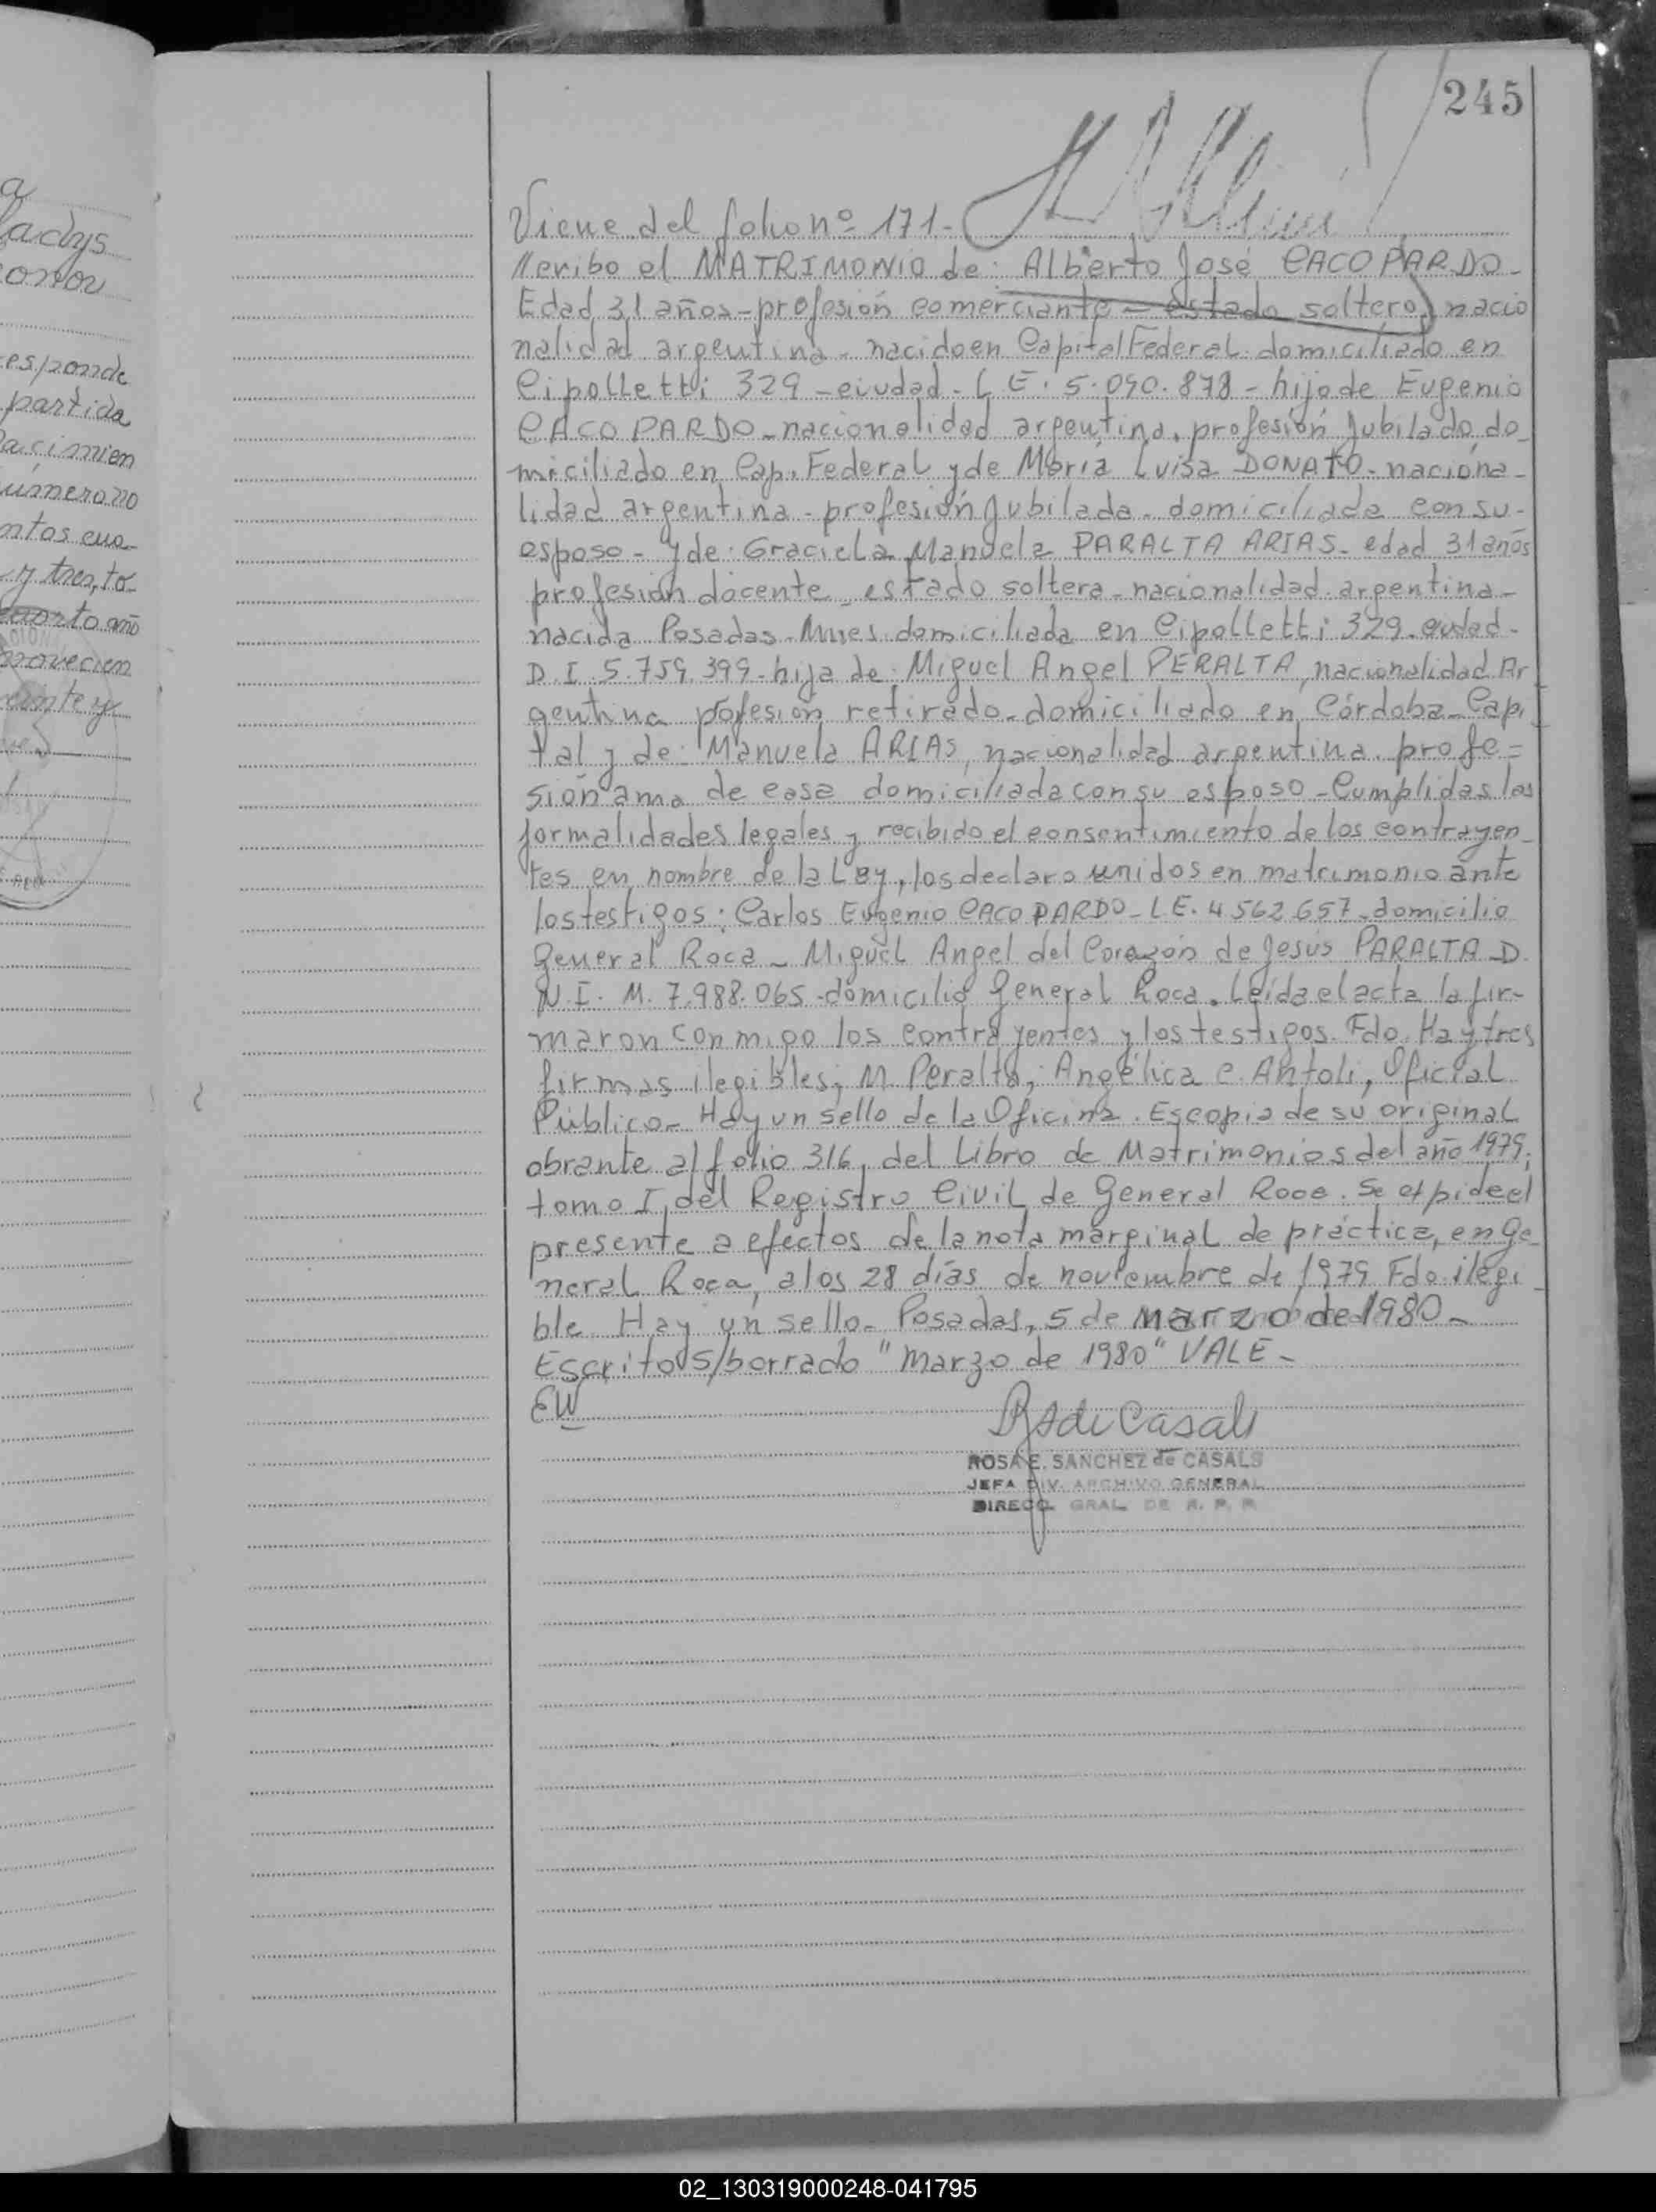 a
ladys
onor
esponde
partida
acimien
úmerono
ntos cua-
y tres, to-
cuarto año
novecien
veinte y
245
Viene del folio nº 171-
cribo el MATRIMONIO de: Alberto José CACOPARDO-
Edad 31 años-profesión comerciante-estado soltero, nacio
nalidad argentina-nacido en Capital Federal-domiciliado en
Cipolletti 329-ciudad-L E. 5.090.878-hijo de Eugenio
CACOPARDO-nacionalidad argentina, profesión Jubilado, do-
miciliado en Cap. Federal y de María Luisa DONATO-naciona-
lidad argentina-profesión Jubilada-domiciliada con su-
esposo-y de: Graciela Manuela PARALTA ARIAS-edad 31 años
profesión docente-estado soltera-nacionalidad argentina-
nacida Posadas-Mnes. domiciliada en Cipolletti 329-ciudad-
D.I. 5.759.399-hija de: Miguel Angel PERALTA, nacionalidad Ar
gentina profesión retirado-domiciliado en Córdoba-Capi
tal y de: Manuela ARIAS, nacionalidad argentina, profe=
sión ama de casa domiciliada con su esposo-Cumplidas las
formalidades legales y recibido el consentimiento de los contrayen
tes en nombre de la Ley, los declaro unidos en matrimonio ante
los testigos: Carlos Eugenio CACOPARDO-LE. 4562657-domicilio
General Roca-Miguel Angel del Corazón de Jesús PARALTA-D.
N.I. M. 7.988.065-domicilio General Roca. Leída el acta la fir-
maron conmigo los contrayentes y los testigos. Fdo. Hay tres
firmas ilegibles; M. Peralta; Angélica C. Antoli, Oficial
Público-Hay un sello de la Oficina. Es copia de su original
obrante al folio 316, del Libro de Matrimonios del año 1979,
tomo I, del Registro Civil de General Roca. Se expide el
presente a efectos de la nota marginal de práctica, en Ge-
neral Roca, a los 28 días de noviembre de 1979 Fdo. ilegi
ble. Hay un sello. Posadas, 5 de marzo de 1980-
Escrito s/borrado "marzo de 1980" VALE-
EW
RSdeCasals
ROSA E. SANCHEZ de CASALS
JEFA DIV. ARCHIVO GENERAL
DIRECC. GRAL DE R. P. P.
02_130319000248-041795